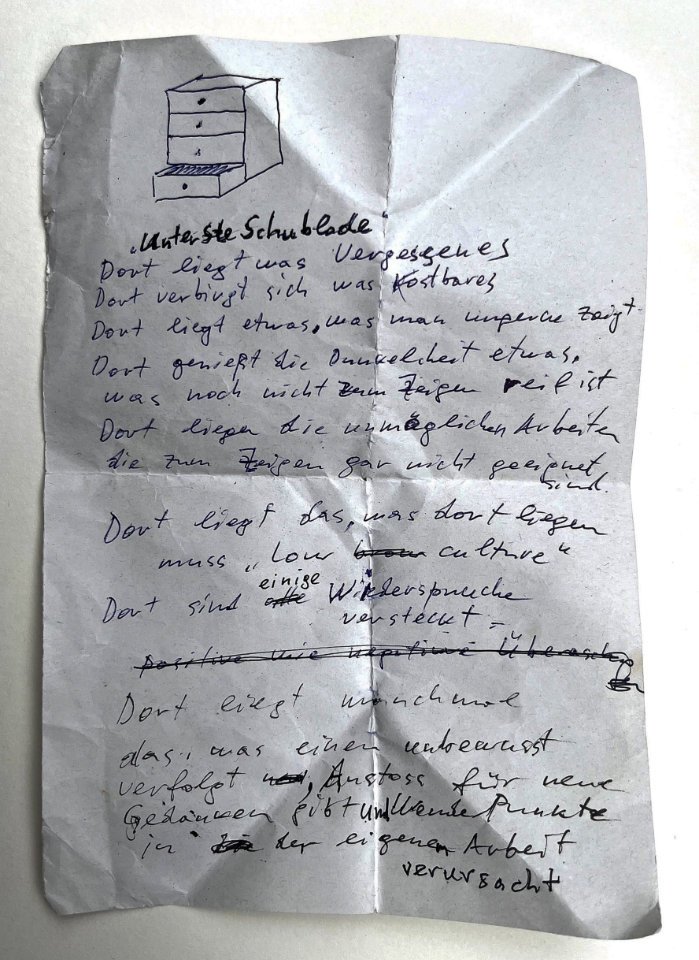 „Unterste Schublade"
Dort liegt was Vergessenes
Dort verbirgt sich was Kostbares
Dort liegt etwas, was man ungerne zeigt
Dort genießt die Dunkelheit etwas,
was noch nicht zum Zeigen reif ist
Dort liegen die unmöglichen Arbeiten
die zum Zeigen gar nicht geeignet
sind.
Dort liegt das, was dort liegen
muss „Low culture"
einige
Dort sind Wiedersprüche
versteckt =
positive wie negative
Dort liegt manchmal
das, was einen unbewusst
verfolgt, Anstoss für neue
Gedanken gibt und Wende Punkte
in der eigenen Arbeit
verursacht